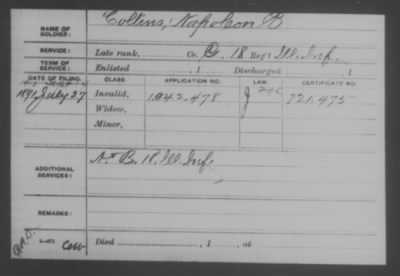 NAME OF SOLDIER: Collins, Napoleon B
SERVICE: Late rank, Co. G, 18 Reg't Ill. Inf.
TERM OF SERVICE: Enlisted , 1 Discharged , 1
DATE OF FILING. CLASS. APPLICATION NO. LAW. CERTIFICATE NO.
1891 July 27 Invalid, 1042.478 J 721.475
Widow,
Minor,
ADDITIONAL SERVICES: B. 18. Ill. Inf.
REMARKS:
Died , 1 , at